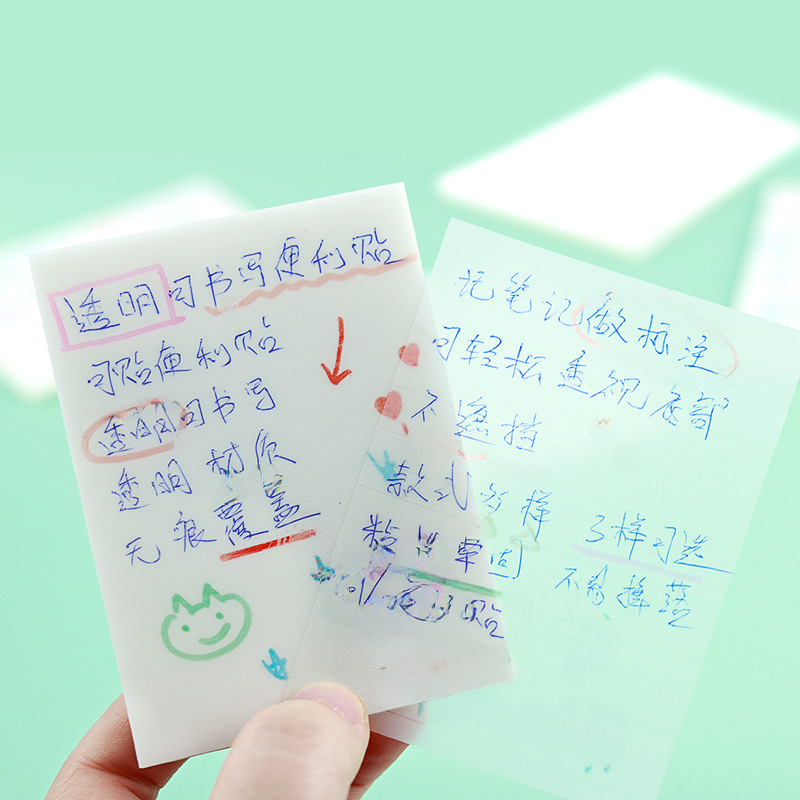 透明可书写便利贴
可贴便利贴
透明可书写
透明材质
无痕覆盖
记笔记做标注
可轻松透视底部
不遮挡
款式多样 3样可选
粘 牢固 不易掉落
可 贴